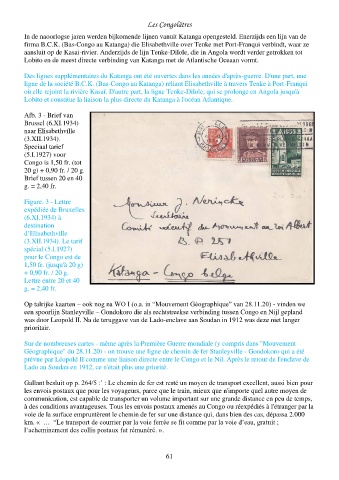 Les Congolâtres
In de naoorlogse jaren werden bijkomende lijnen vanuit Katanga opengesteld. Enerzijds een lijn van de
firma B.C.K. (Bas-Congo au Katanga) die Elisabethville over Tenke met Port-Franqui verbindt, waar ze
aansluit op de Kasaï-rivier. Anderzijds de lijn Tenke-Dilolo, die in Angola wordt verder getrokken tot
Lobito en de meest directe verbinding van Katanga met de Atlantische Oceaan vormt.
Des lignes supplémentaires du Katanga ont été ouvertes dans les années d'après-guerre. D'une part, une
ligne de la société B.C.K. (Bas-Congo au Katanga) reliant Elisabethville à travers Tenke à Port-Franqui
où elle rejoint la rivière Kasaï. D'autre part, la ligne Tenke-Dilolo, qui se prolonge en Angola jusqu'à
Lobito et constitue la liaison la plus directe du Katanga à l'océan Atlantique.
Afb. 3 - Brief van
Brussel (6.XI.1934)
naar Elisabethville
(3.XII.1934).
Speciaal tarief
(5.I.1927) voor
Congo is 1,50 fr. (tot
20 g) + 0,90 fr. / 20 g.
Brief tussen 20 en 40
g. = 2,40 fr.
Figure. 3 - Lettre
expédiée de Bruxelles
(6.XI.1934) à
destination
d'Elisabethville
(3.XII.1934). Le tarif
spécial (5.I.1927)
pour le Congo est de
1,50 fr. (jusqu'à 20 g)
+ 0,90 fr. / 20 g.
Lettre entre 20 et 40
g. = 2,40 fr.
Monsieur J. Nerincks
Secrétaire
Comité exécutif du Monument au roi Albert
B. P. 251
Elisabethville
Katanga - Congo belge
Op talrijke kaarten – ook nog na WO I (o.a. in "Mouvement Géographique" van 28.11.20) - vinden we
een spoorlijn Stanleyville – Gondokoro die als rechtstreekse verbinding tussen Congo en Nijl gepland
was door Leopold II. Na de teruggave van de Lado-enclave aan Soudan in 1912 was deze niet langer
prioritair.
Sur de nombreuses cartes - même après la Première Guerre mondiale (y compris dans "Mouvement
Géographique" du 28.11.20) - on trouve une ligne de chemin de fer Stanleyville - Gondokoro qui a été
prévue par Léopold II comme une liaison directe entre le Congo et le Nil. Après le retour de l'enclave de
Lado au Soudan en 1912, ce n'était plus une priorité.
Gallant besluit op p. 264/5 :' : Le chemin de fer est resté un moyen de transport excellent, aussi bien pour
les envois postaux que pour les voyageurs, parce que le train, mieux que n'importe quel autre moyen de
communication, est capable de transporter un volume important sur une grande distance en peu de temps,
à des conditions avantageuses. Tous les envois postaux amenés au Congo ou réexpédiés à l'étranger par la
voie de la surface empruntèrent le chemin de fer sur une distance qui, dans bien des cas, dépassa 2.000
km. « … "Le transport de courrier par la voie ferrée se fit comme par la voie d'eau, gratuit ;
l'acheminement des collis postaux fut rémunéré. ».
61